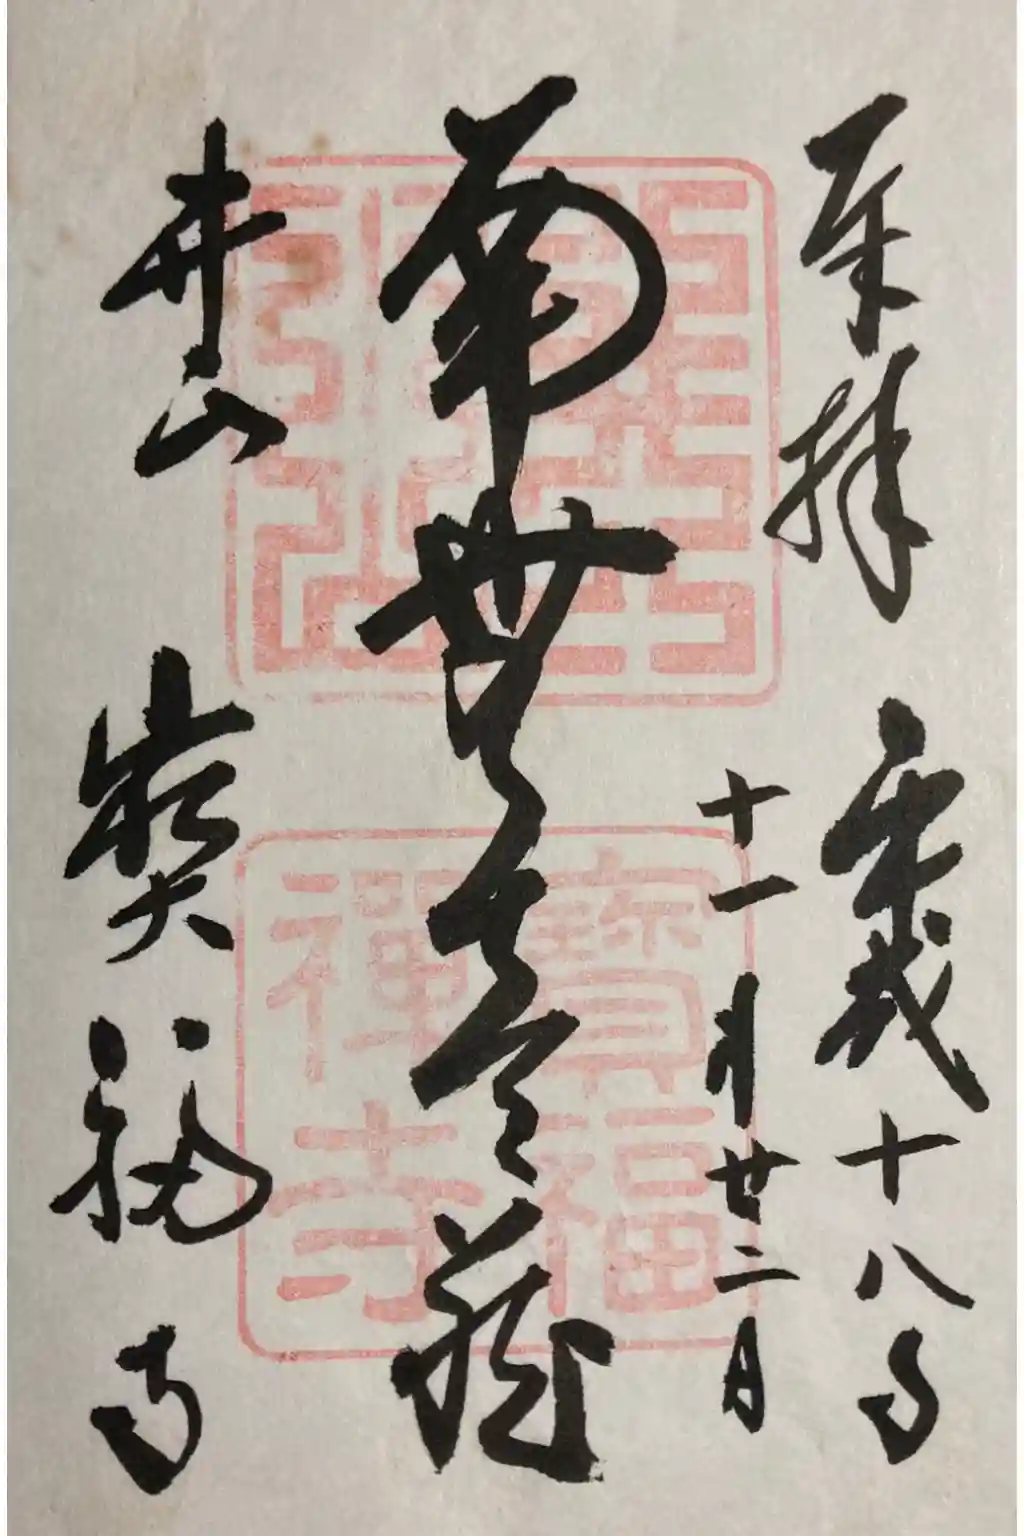 奉拝 平成十八年
十一月廿二日
南無虚空蔵
井山 寶福寺
寶福
禪寺